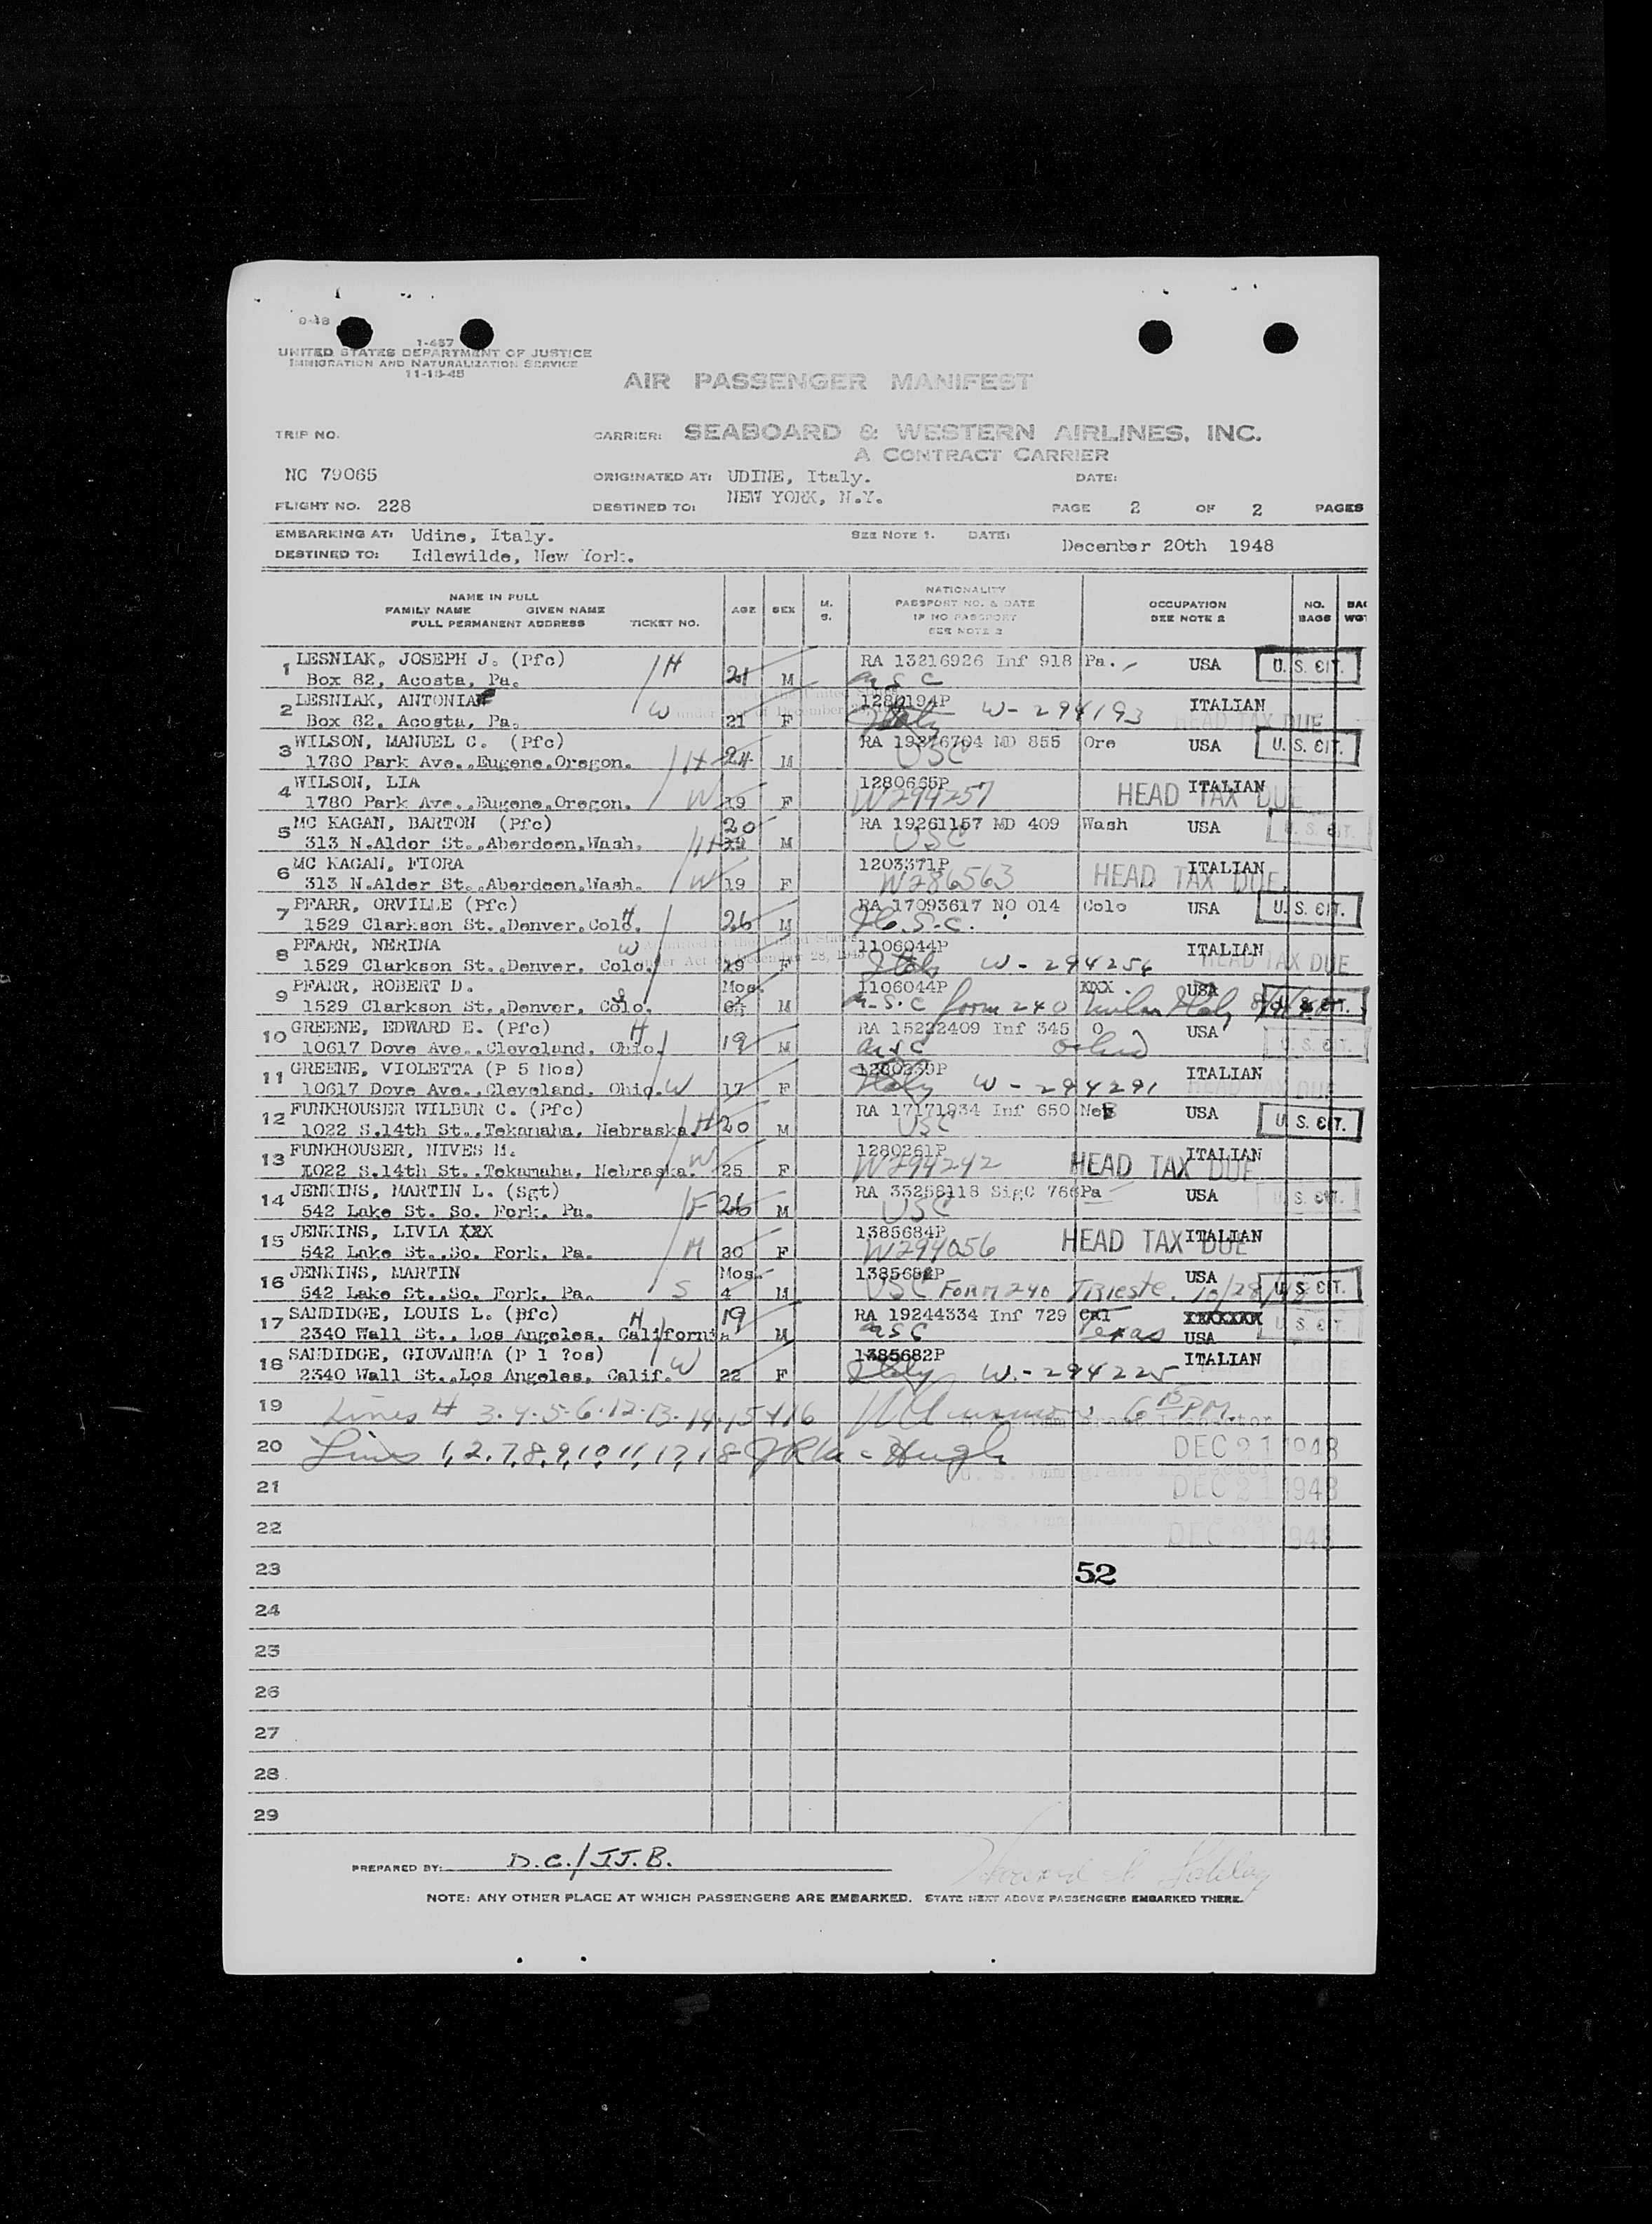 0-48
1-457
UNITED STATES DEPARTMENT OF JUSTICE
IMMIGRATION AND NATURALIZATION SERVICE
11-15-45
AIR PASSENGER MANIFEST
TRIP NO. CARRIER: SEABOARD & WESTERN AIRLINES, INC.
A CONTRACT CARRIER
NC 79065 ORIGINATED AT: UDINE, Italy. DATE:
FLIGHT NO. 228 DESTINED TO: NEW YORK, N.Y. PAGE 2 OF 2 PAGES
EMBARKING AT: Udine, Italy. SEE NOTE 1. DATE: December 20th 1948
DESTINED TO: Idlewilde, New York.
NAME IN FULL
FAMILY NAME GIVEN NAME
FULL PERMANENT ADDRESS TICKET NO.
AGE SEX M. S.
NATIONALITY
PASSPORT NO. & DATE
IF NO PASSPORT
SEE NOTE 2
OCCUPATION
SEE NOTE 2
NO. BAGS
BAG WGT
1 LESNIAK, JOSEPH J. (Pfc) H RA 13216926 Inf 918 Pa. USA U. S. CIT.
Box 82, Acosta, Pa. 21 M USC
2 LESNIAK, ANTONIA 1280194P W-294193 ITALIAN
Box 82, Acosta, Pa. W 21 F Italy HEAD TAX DUE
3 WILSON, MANUEL C. (Pfc) RA 19276704 MD 855 Ore USA U. S. CIT.
1780 Park Ave.,Eugene,Oregon. H 24 M USC
4 WILSON, LIA 1280665P ITALIAN
1780 Park Ave.,Eugene,Oregon. W 19 F W294257 HEAD TAX DUE
5 MC KAGAN, BARTON (Pfc) 20 RA 19261157 MD 409 Wash USA U. S. CIT.
313 N.Alder St.,Aberdeen,Wash. H M USC
6 MC KAGAN, FIORA 1203371P ITALIAN
313 N.Alder St.,Aberdeen,Wash. W 19 F W286563 HEAD TAX DUE
7 PFARR, ORVILLE (Pfc) RA 17093617 NO 014 Colo USA U. S. CIT.
1529 Clarkson St.,Denver,Colo. H 26 M U.S.C.
8 PFARR, NERINA W 1106044P ITALIAN
1529 Clarkson St.,Denver, Colo. 19 F Italy W-294254 HEAD TAX DUE
9 PFARR, ROBERT D. Mos. 1106044P XXX USA
1529 Clarkson St.,Denver, Colo. S M U.S.C Form 240 Milan Italy U. S. CIT.
10 GREENE, EDWARD E. (Pfc) H RA 15222409 Inf 345 O USA
10617 Dove Ave.,Cleveland, Ohio. 19 M USC Ohio U. S. CIT.
11 GREENE, VIOLETTA (P 5 Mos) 1280239P ITALIAN
10617 Dove Ave.,Cleveland, Ohio. W 17 F Italy W-294291 HEAD TAX DUE
12 FUNKHOUSER WILBUR C. (Pfc) RA 17171934 Inf 650 NeB USA
1022 S.14th St.,Tekamaha, Nebraska. H 20 M USC U. S. CIT.
13 FUNKHOUSER, NIVES M. 1280261P ITALIAN
1022 S.14th St.,Tekamaha, Nebraska. W 25 F W294242 HEAD TAX DUE
14 JENKINS, MARTIN L. (Sgt) RA 33258118 SigC 766 Pa USA U. S. CIT.
542 Lake St. So. Fork, Pa. F 26 M USC
15 JENKINS, LIVIA XXX 1385684P ITALIAN
542 Lake St.,So. Fork, Pa. M 30 F W294056 HEAD TAX DUE
16 JENKINS, MARTIN Mos. USA
542 Lake St.,So. Fork, Pa. S 4 M USC FORM 240 Trieste. 10/28/48 U. S. CIT.
17 SANDIDGE, LOUIS L. (Pfc) H 19 RA 19244334 Inf 729 Cal XXXXXXX U. S. CIT.
2340 Wall St., Los Angeles, California M USC Texas USA
18 SANDIDGE, GIOVANNA (P 1 ?os) 1385682P ITALIAN
2340 Wall St.,Los Angeles, Calif. W 22 F Italy W.-294225
19 Lines # 3.4.5.6.12.13.14.15+16 6 15 PM.
Immigrant Inspector
20 Lines 1,2,7,8,9,10,11,17,18 DEC 21 1948
21 U. S. Immigrant Inspector
DEC 21 1948
22 DEC 21 1948
23 52
24
25
26
27
28
29
PREPARED BY: D.C./JJ.B.
NOTE: ANY OTHER PLACE AT WHICH PASSENGERS ARE EMBARKED. STATE NEXT ABOVE PASSENGERS EMBARKED THERE.